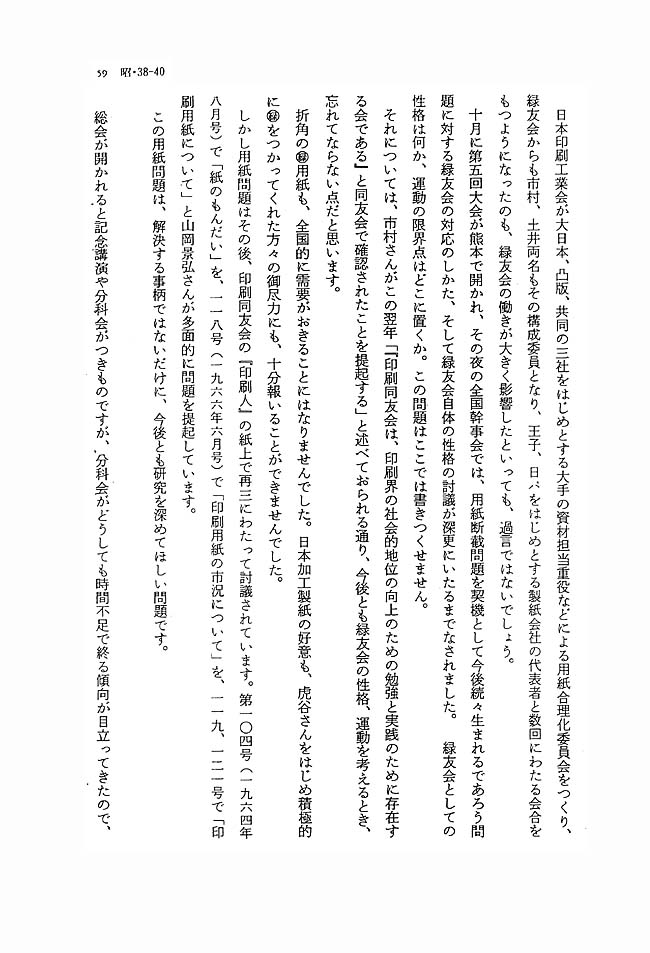 59　昭・38-40
日本印刷工業会が大日本、凸版、共同の三社をはじめとする大手の資材担当重役などによる用紙合理化委員会をつくり、
緑友会からも市村、土井両名もその構成委員となり、王子、日パをはじめとする製紙会社の代表者と数回にわたる会合を
もつようになったのも、緑友会の働きが大きく影響したといっても、過言ではないでしょう。
十月に第五回大会が熊本で開かれ、その夜の全国幹事会では、用紙断截問題を契機として今後続々生まれるであろう問
題に対する緑友会の対応のしかた、そして緑友会自体の性格の討議が深更にいたるまでなされました。　緑友会としての
性格は何か、運動の限界点はどこに置くか。この問題はここでは書きつくせません。
それについては、市村さんがこの翌年「『印刷同友会は、印刷界の社会的地位の向上のための勉強と実践のために存在す
る会である』と同友会で確認されたことを提起する」と述べておられる通り、今後とも緑友会の性格、運動を考えるとき、
忘れてならない点だと思います。
折角の㊙用紙も、全国的に需要がおきることにはなりませんでした。日本加工製紙の好意も、虎谷さんをはじめ積極的
に㊙をつかってくれた方々の御尽力にも、十分報いることができませんでした。
しかし用紙問題はその後、印刷同友会の『印刷人』の紙上で再三にわたって討議されています。第一〇四号（一九六四年
八月号）で「紙のもんだい」を、一一八号（一九六六年六月号）で「印刷用紙の市況について」を、一一九、一二一号で「印
刷用紙について」と山岡景弘さんが多面的に問題を提起しています。
この用紙問題は、解決する事柄ではないだけに、今後とも研究を深めてほしい問題です。
総会が開かれると記念講演や分科会がつきものですが、分科会がどうしても時間不足で終る傾向が目立ってきたので、